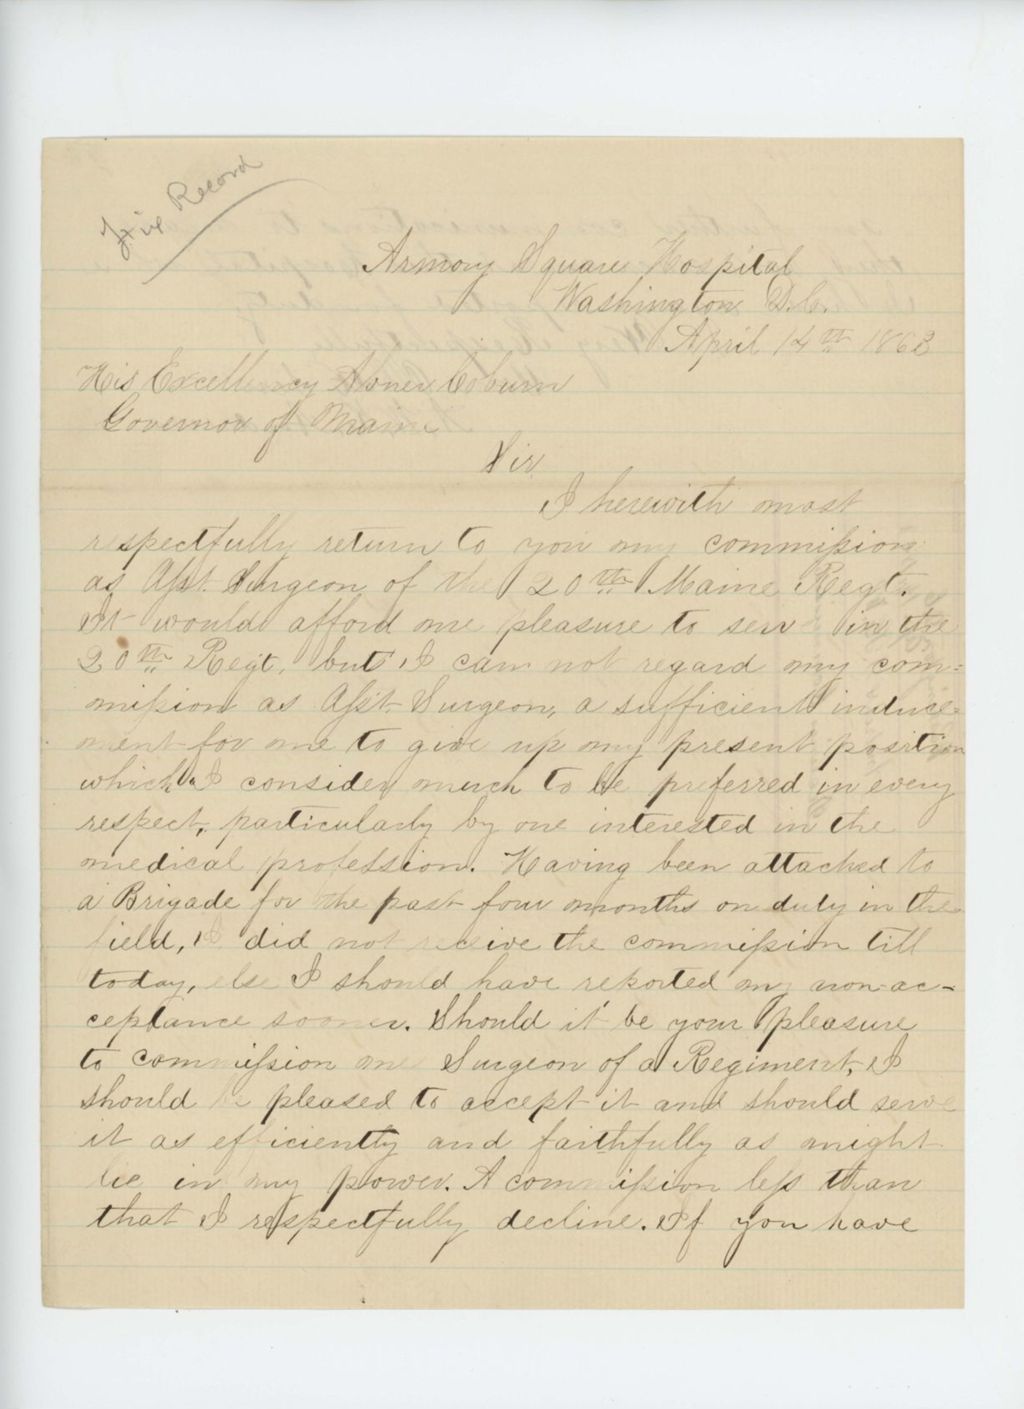 Fix Record
Armory Square Hospital
Washington D.C.
April 14th 1863
His Excellency Abner Coburn
Governor of Maine
Sir
I herewith most
respectfully return to you my commission
as Asst. Surgeon of the 20th Maine Regt.
It would afford me pleasure to serve in the
20th Regt. but I cam not regard my com=
mission as Asst. Surgeon, a sufficient induce=
ment for me to give up my present position
which I consider much to be preferred in every
respect, particularly by one interested in the
medical profession. Having been attached to
a Brigade for the past four months on duty in the
field, I did not receive the commission till
today, else I should have reported my non-ac-
ceptance sooner. Should it be your pleasure
to commission me Surgeon of a Regiment, I
should be pleased to accept it and should serve
it as efficiently and faithfully as might
lie in my power. A commission less than
that I respectfully decline. If you have